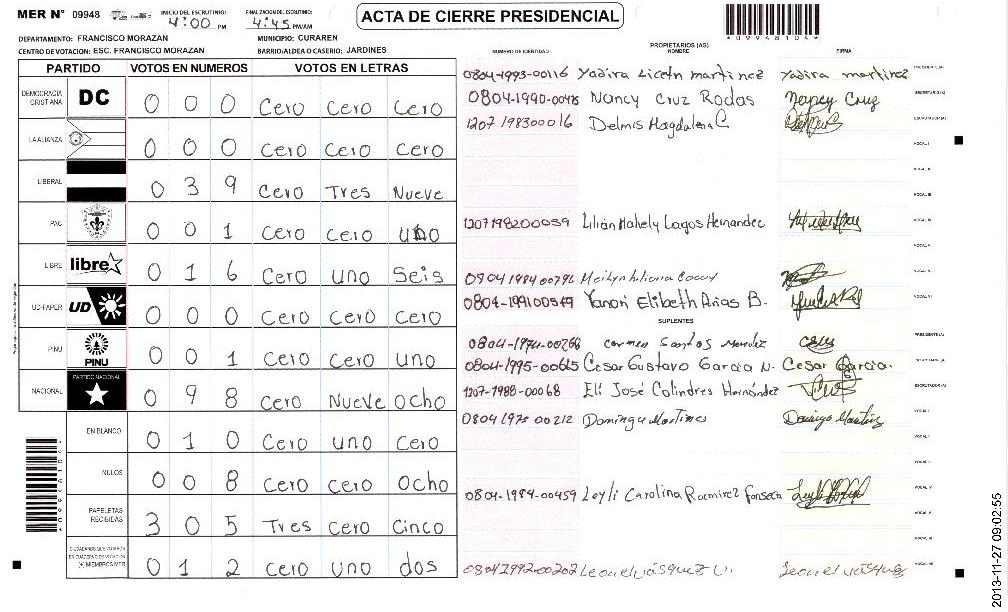 MER Nº 09948 INICIO DEL ESCRUTINIO: 4:00 PM FINALIZACION DEL ESCRUTINIO: 4:45 PM/AM
ACTA DE CIERRE PRESIDENCIAL
*09948104*
DEPARTAMENTO: FRANCISCO MORAZAN MUNICIPIO: CURAREN
CENTRO DE VOTACION: ESC. FRANCISCO MORAZAN BARRIO/ALDEA O CASERIO: JARDINES
NUMERO DE IDENTIDAD PROPIETARIOS (AS) NOMBRE FIRMA
PARTIDO VOTOS EN NUMEROS VOTOS EN LETRAS
DEMOCRACIA CRISTIANA DC 0 0 0 Cero Cero Cero
LA ALIANZA 0 0 0 Cero Cero Cero
LIBERAL 0 3 9 Cero Tres Nueve
PAC 0 0 1 Cero Cero uno
LIBRE libre 0 1 6 Cero uno Seis
UD-FAPER UD 0 0 0 Cero Cero Cero
PINU PINU 0 0 1 Cero Cero uno
NACIONAL PARTIDO NACIONAL 0 9 8 Cero Nueve Ocho
EN BLANCO 0 1 0 Cero uno Cero
NULOS 0 0 8 Cero Cero Ocho
PAPELETAS RECIBIDAS 3 0 5 Tres Cero Cinco
CIUDADANOS QUE VOTARON EN CUADERNO DE VOTACION (+) MIEMBROS MER 0 1 2 Cero uno dos
0804-1993-00116 Yadira Liceth martinez Yadira martinez PRESIDENTE(A)
0804-1990-00475 Nancy Cruz Rodas Nancy Cruz SECRETARIO(A)
1207 198300016 Delmis Magdalena C. ESCRUTADOR(A)
VOCAL I
VOCAL II
VOCAL III
1207198200059 Lilian Mahely Lagos Hernandez VOCAL IV
VOCAL V
0804 1984 00796
0804-199100549 Yanori Elibeth Arias B. VOCAL VI
SUPLENTES
0804-1974-00266 Carmen Santos Mendez PRESIDENTE(A)
0804-1995-00615 Cesar Gustavo Garcia N. Cesar Garcia. SECRETARIO(A)
1207-1988-00068 Elí José Colindres Hernández ESCRUTADOR(A)
0804 1975 00212 Domingo Martines Domingo Martinez VOCAL I
VOCAL II
VOCAL III
0804-1984-00459 Leyli Carolina Ramirez Fonseca VOCAL IV
VOCAL V
VOCAL VI
0804 1992-00202 Leonel vásquez V. Leonel vásquez VOCAL VII
2013-11-27 09:02:55